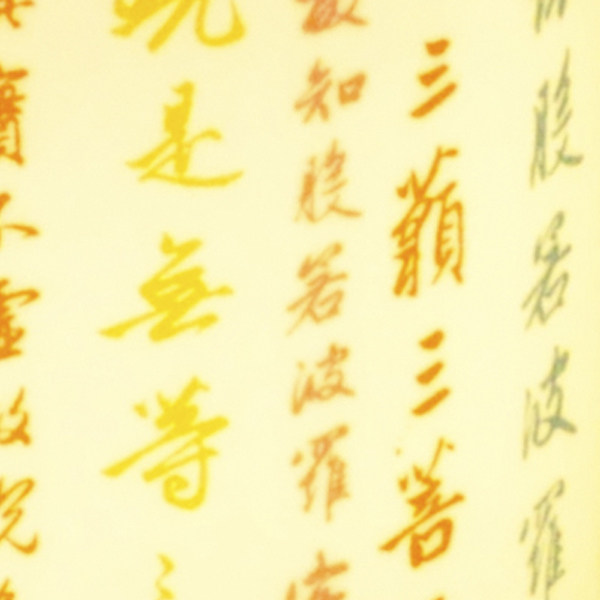 般若波羅
三藐三菩
故知般若波羅
呪是無等
實不虛故說